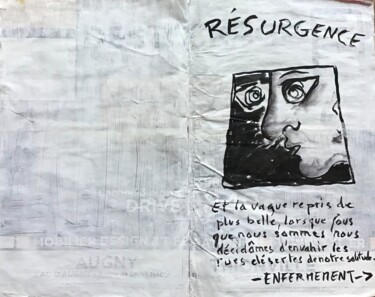 RÉSURGENCE
Et la vague repris de
plus belle, lorsque sous
que nous sommes nous
décidâmes d'envahir les
rues désertes de notre solitude.
-ENFERMEMENT->
DRIVE
MOBILIER DESIGN
AUGNY